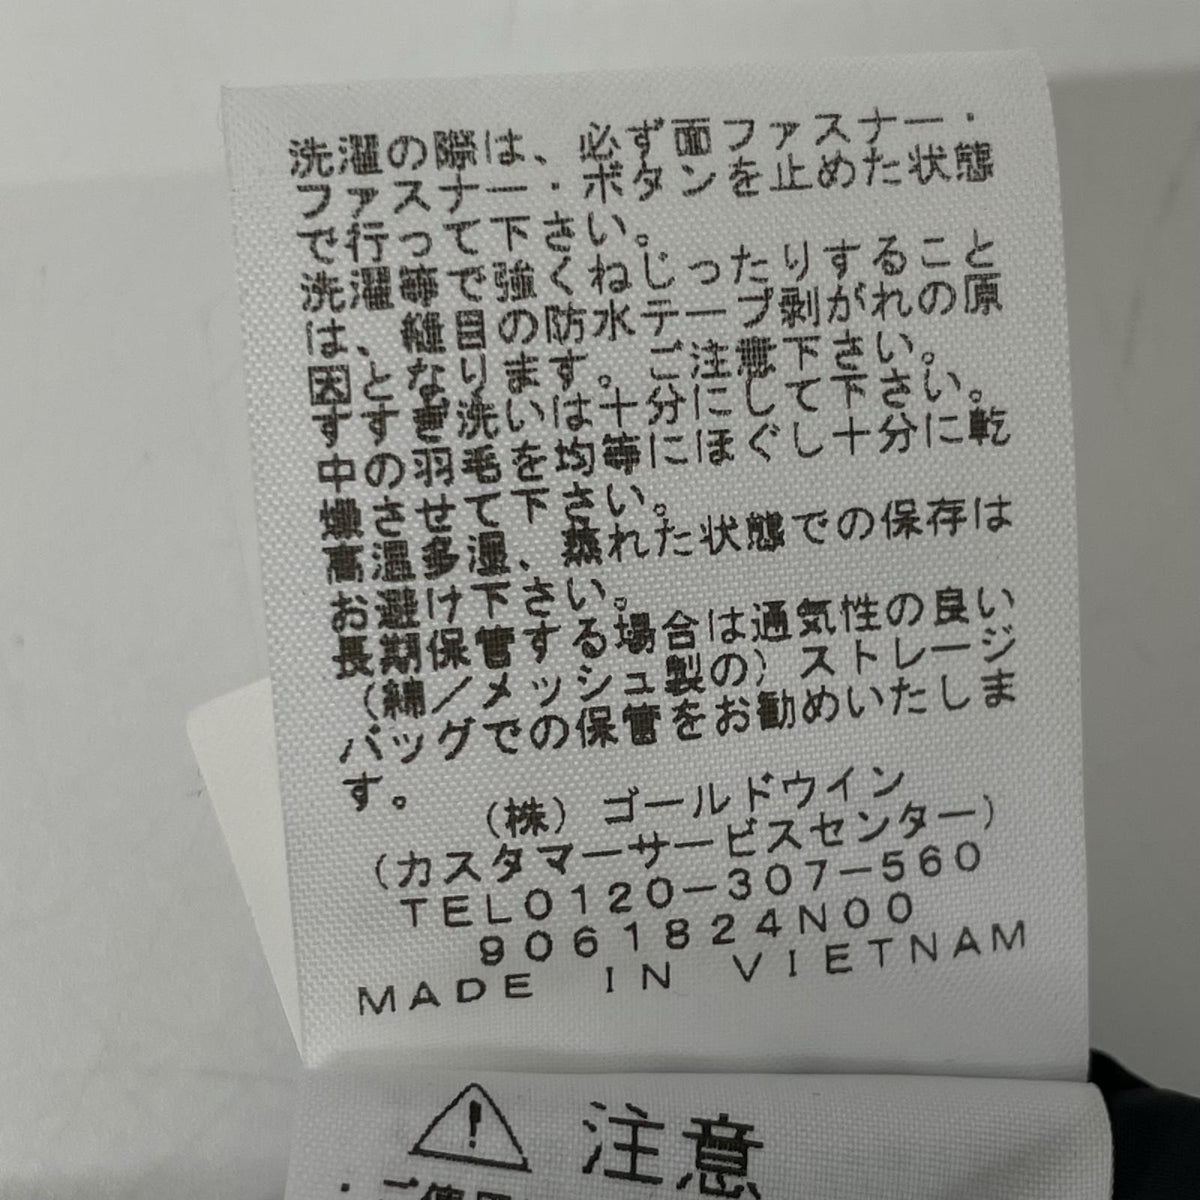 洗濯の際は、必ず面ファスナー・
ファスナー・ボタンを止めた状態
で行って下さい。
洗濯等で強くねじったりすること
は、縫目の防水テープ剥がれの原
因となります。ご注意下さい。
すすぎ洗いは十分にして下さい。
中の羽毛を均等にほぐし十分に乾
燥させて下さい。
高温多湿、蒸れた状態での保存は
お避け下さい。
長期保管する場合は通気性の良い
（綿／メッシュ製の）ストレージ
バッグでの保管をお勧めいたしま
す。
（株）ゴールドウイン
（カスタマーサービスセンター）
TEL0120-307-560
9061824N00
MADE IN VIETNAM
注意